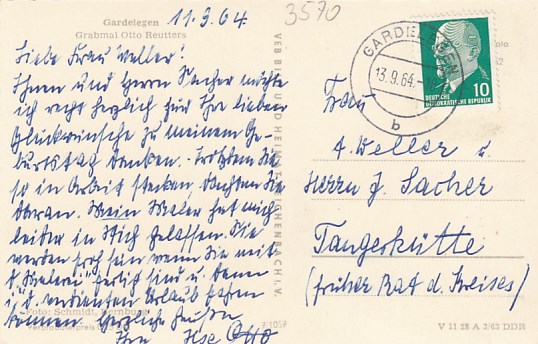 11.9.64
3570
Gardelegen
Grabmal Otto Reutters
Liebe Frau Weller!
Ihnen und Herrn Sacher möchte
ich recht herzlich für Ihr lieben
Glückwünsche zu meinem Ge-
burtstag danken. Trotzdem Sie
so in Arbeit stecken, dachten Sie
daran. Mein Maler hat mich
leider in Stich gelassen. Sie
werden froh sein wenn Sie mit
d. Malerei fertig sind u. dann
i./ d. verdienten Urlaub fahren
können. Herzliche Grüße
Ihre Ilse Otto
Foto: Schmidt, Bernburg
Verbraucherpreis
VEB BILD UND HEIMAT REICHENBACH I. V.
GARDELEGEN
13.9.64
b
10
DEUTSCHE
DEMOKRATISCHE REPUBLIK
Frau
A. Weller u.
Herrn J. Sacher
Tangerhütte
(früher Rat d. Kreises)
V 11 28 A 3/63 DDR